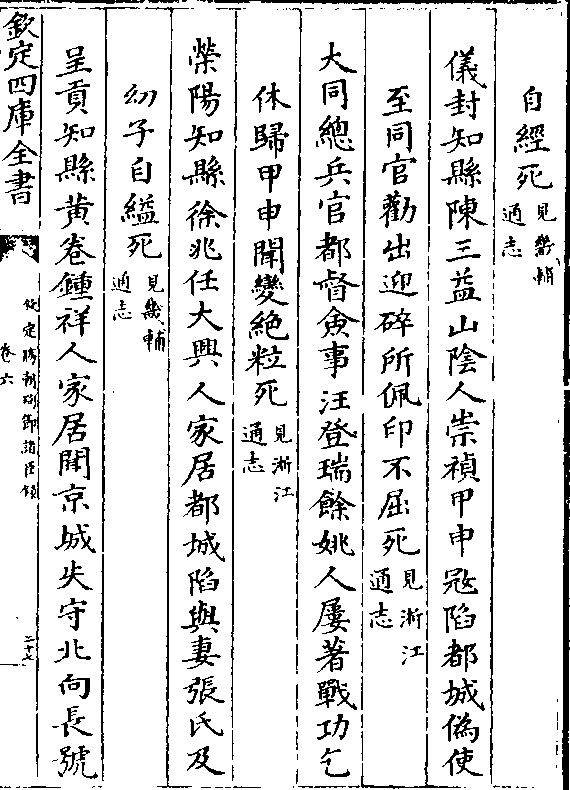 自經死見畿輔通志
儀封知縣陳三益山陰人崇禎甲申冦陷都城偽使
至同官勸出迎碎所佩印不屈死見淅江通志
大同總兵官都督僉事汪登瑞餘姚人屢著戰功乞
休歸甲申聞變絶粒死見淅江通志
滎陽知縣徐兆任大興人家居都城陷與妻張氏及
幼子自縊死見畿輔通志
呈貢知縣黄卷鍾祥人家居聞京城失守北向長號
欽定四庫全書
欽定勝朝殉節諸臣錄
卷六
二十七